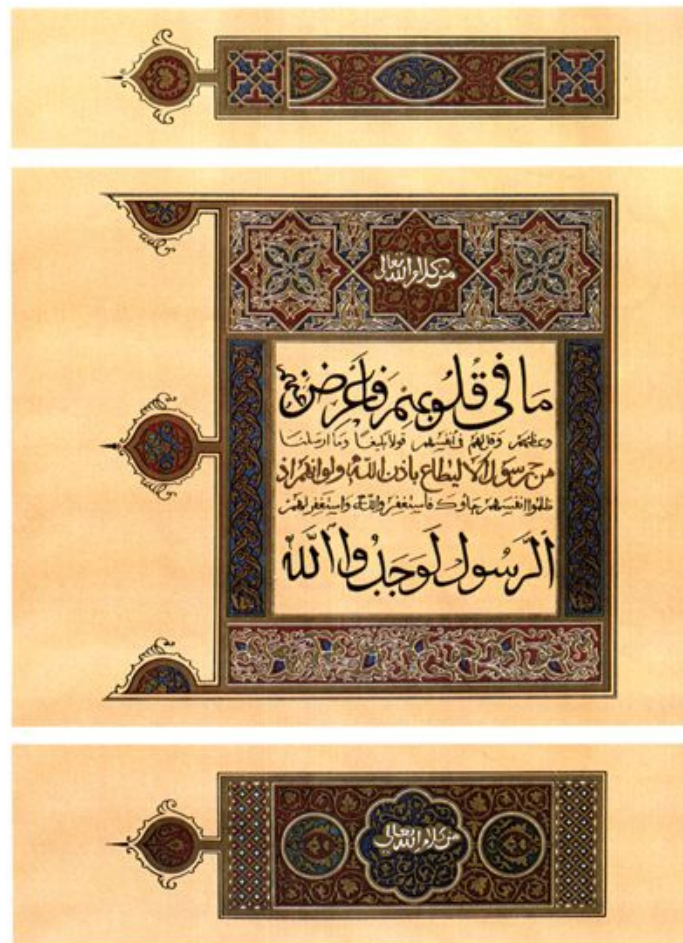 من كلام الله تعالى
مَا فى قُلُوبهم فَاَعْرض عنهم
وعظهم وقل لهم فى انفسهم قولا بليغا وما ارسلنا
من رسول الا ليطاع باذن الله ولو انهم اذ
ظلموا انفسهم جاوك فاستغفروا الله واستغفر لهم
اَلرَّسُول لَوَجَدُوا اللَّه
من كلام الله تعالى